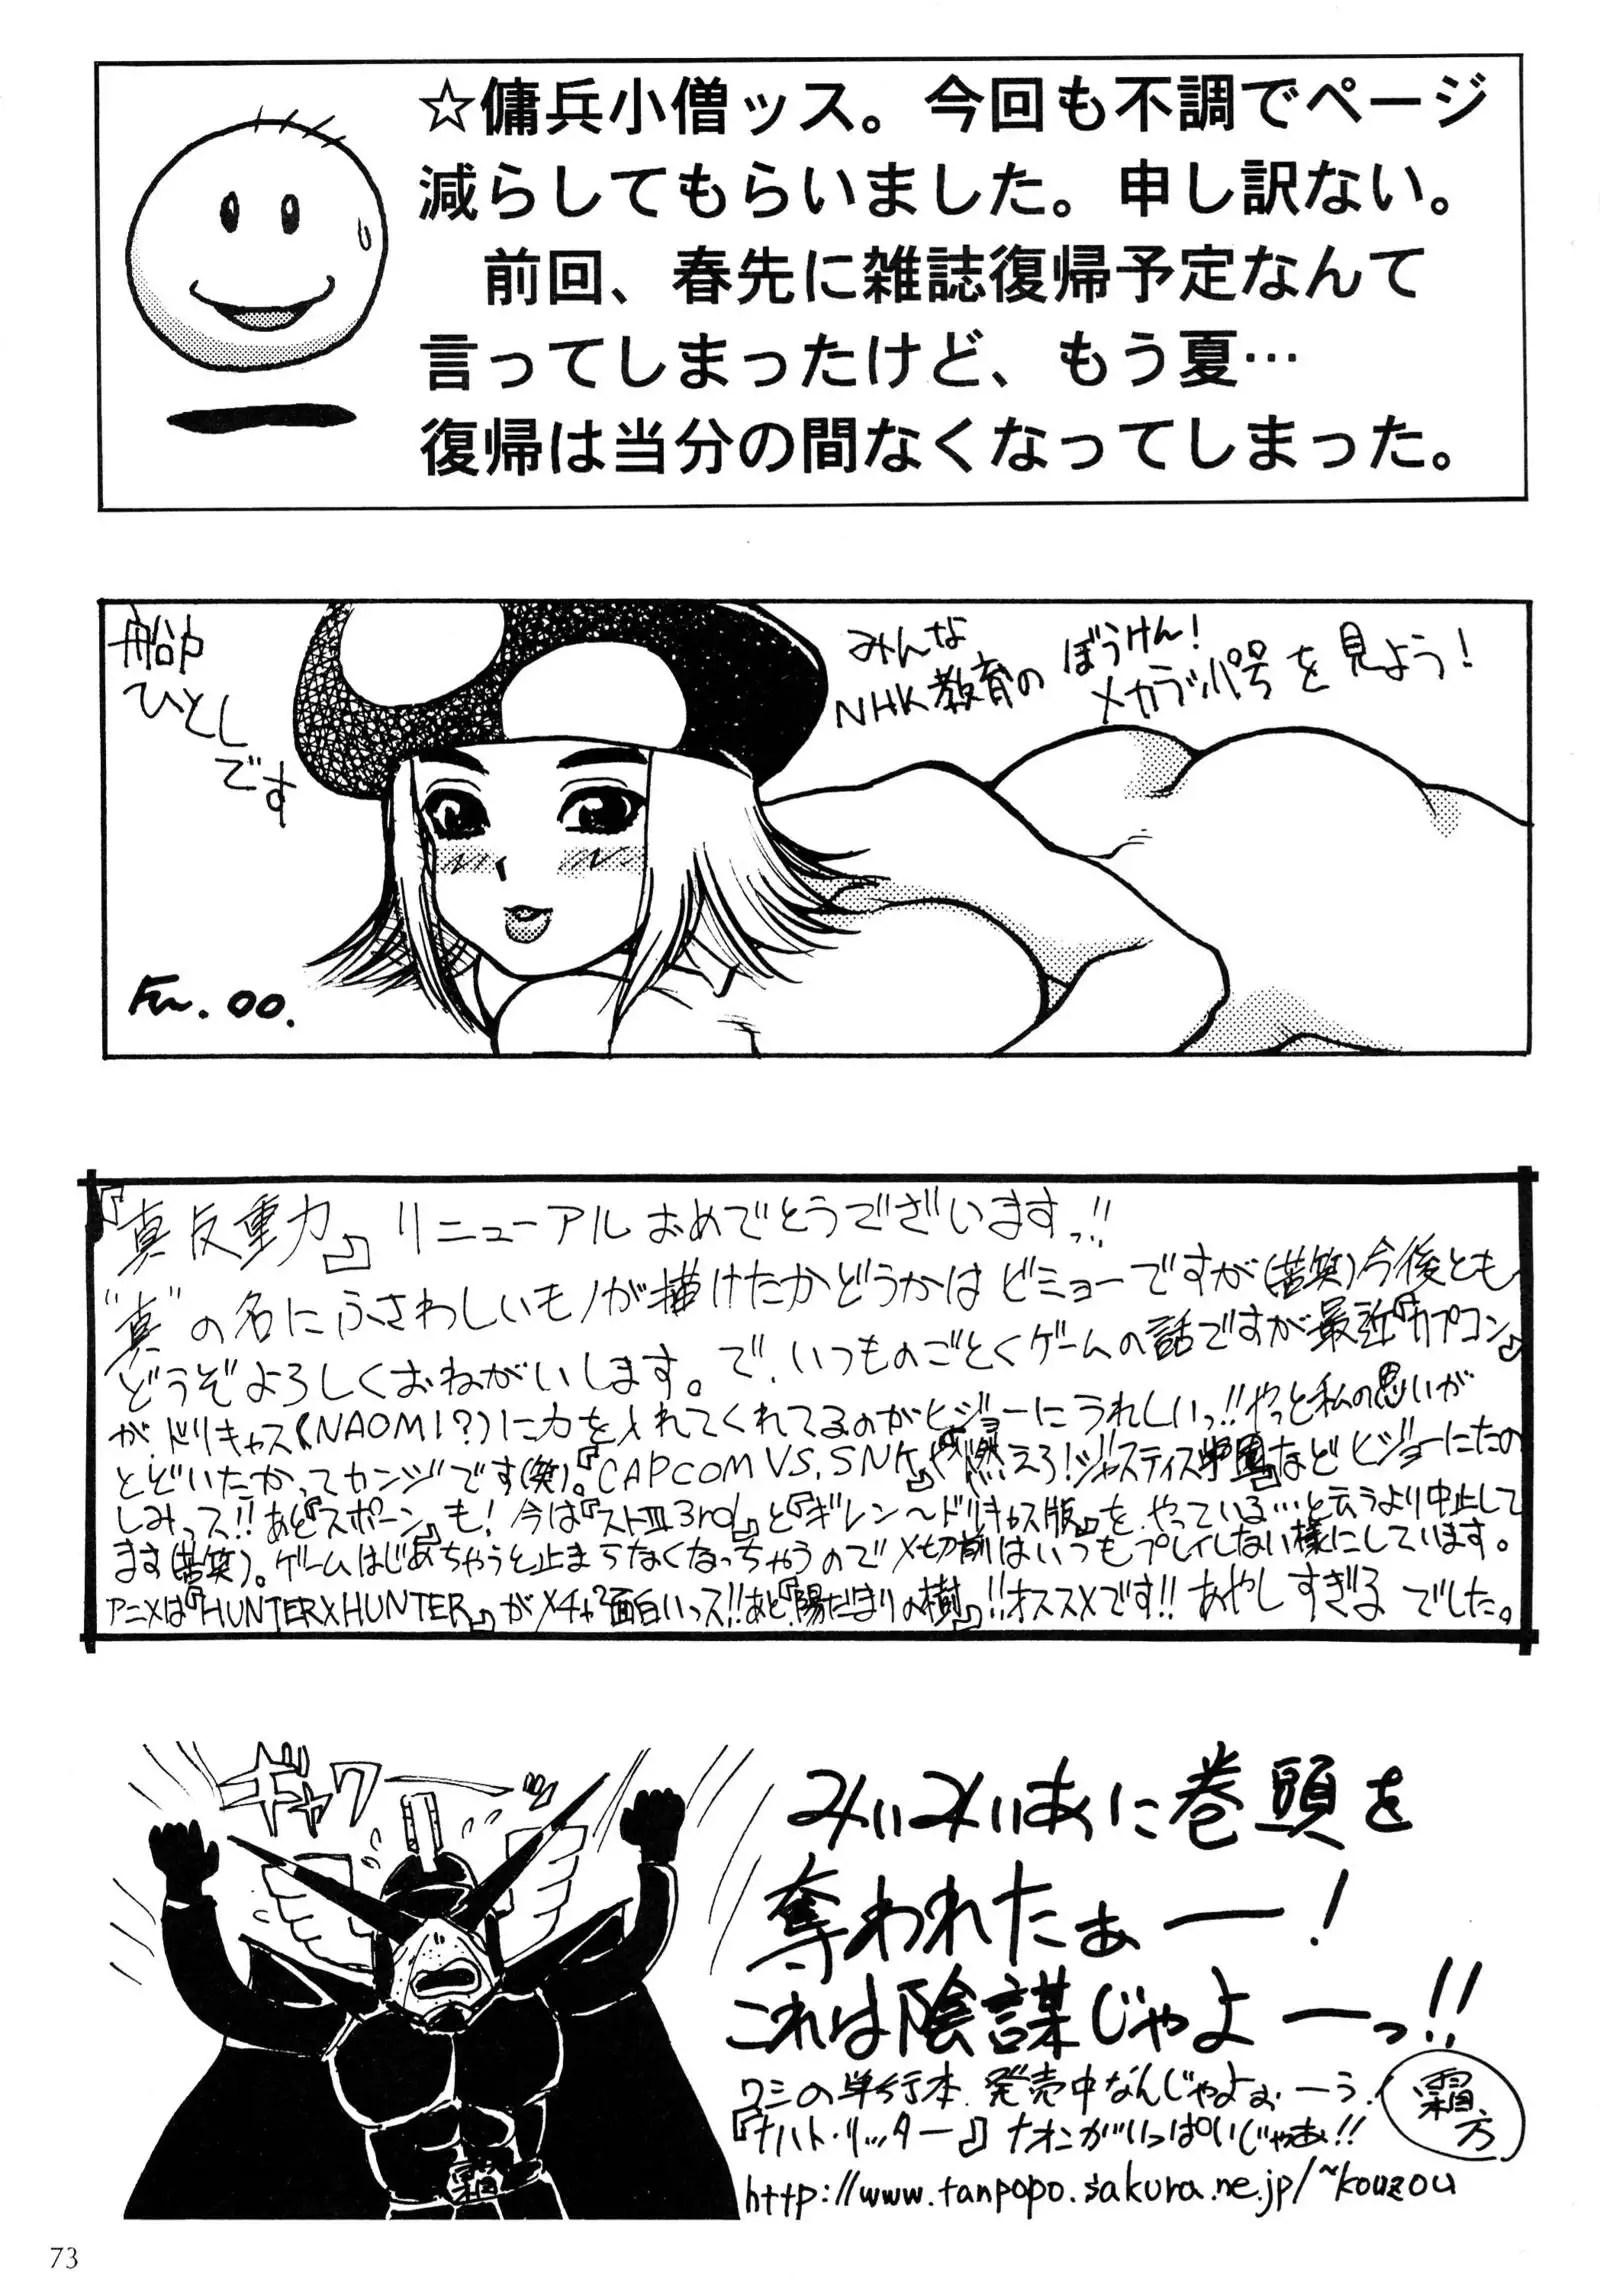 ☆傭兵小僧ッス。今回も不調でページ
減らしてもらいました。申し訳ない。
前回、春先に雑誌復帰予定なんて
言ってしまったけど、もう夏…
復帰は当分の間なくなってしまった。
船戸
ひとし
です
みんな
NHK教育の ぼうけん!
メカラッパ号を見よう!
00.
『真反重力』リニューアルおめでとうでございますっ!!
"真"の名にふさわしいモノが描けたかどうかはビミョーですが(苦笑)今後とも
どうぞよろしくおねがいします。で、いつものごとくゲームの話ですが最近『カプコン』
が、ドリキャス(NAOMI?)に力を入れてくれてるのがヒジョーにうれしいっ!!やっと私の思いが
とどいたかってカンジです(笑)。『CAPCOM VS. SNK』や『燃えろ!ジャスティス学園』などヒジョーにたの
しみっス!!あと『スポーン』も!今は『ストIII 3rd』と『ギレン〜ドリキャス版』を、やっている…と云うより中止して
ます(苦笑)。ゲームはじめちゃうと止まらなくなっちゃうのでメ切前はいつもプレイしない様にしています。
アニメは『HUNTER×HUNTER』がメチャ面白いっス!!あと『陽だまりの樹』!!オススメです!! あやしすぎる でした。
ギャワーーッ
みぃみぃあに巻頭を
奪われたぁー!
これは陰謀じゃよーっ!!
ワシの単行本、発売中なんじゃよぉーう、
『ナハト・リッター』ナオンがいっぱいじゃあ!!
霜方
http://www.tanpopo.sakura.ne.jp/~kouzou
霜
73